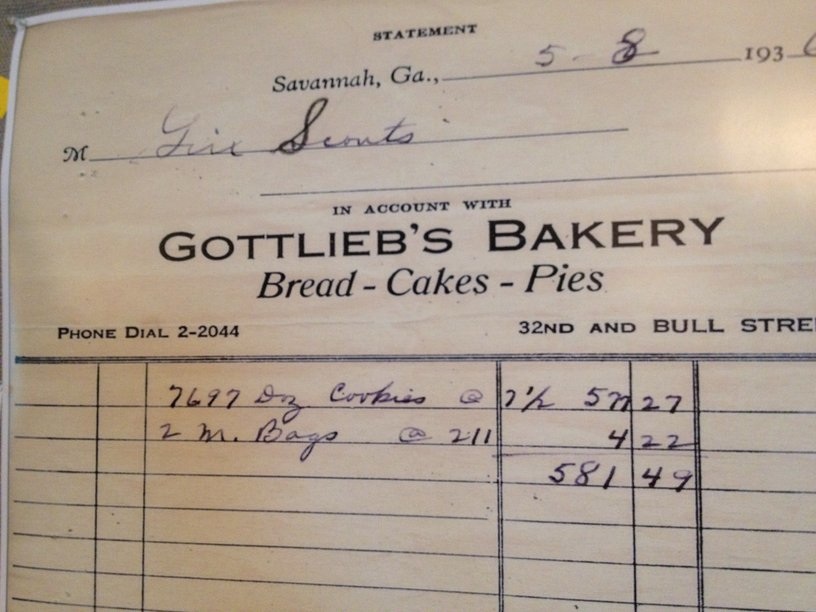 STATEMENT
Savannah, Ga., 5-8 1936
M Girl Scouts
IN ACCOUNT WITH
GOTTLIEB'S BAKERY
Bread - Cakes - Pies
PHONE DIAL 2-2044 32ND AND BULL STREE
7697 Doz Cookies @ 7½ 577 27
2 M. Bags @ 211 4 22
581 49